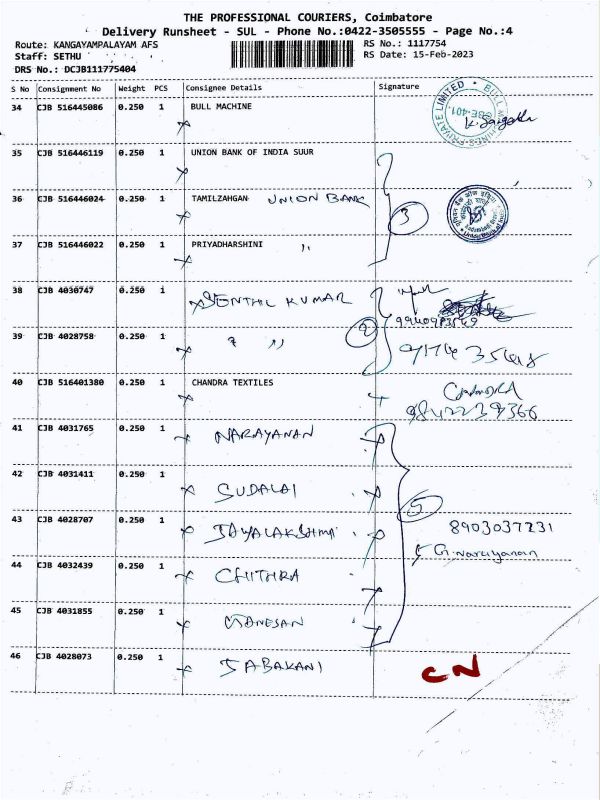 THE PROFESSIONAL COURIERS, Coimbatore
Delivery Runsheet - SUL - Phone No.:0422-3505555 - Page No.:4
Route: KANGAYAMPALAYAM AFS RS No.: 1117754
Staff: SETHU RS Date: 15-Feb-2023
DRS No.: DCJB111775404
S No Consignment No Weight PCS Consignee Details Signature
34 CJB 516445086 0.250 1 BULL MACHINE
35 CJB 516446119 0.250 1 UNION BANK OF INDIA SUUR
36 CJB 516446024 0.250 1 TAMILZAHGAN UNION BANK 3
37 CJB 516446022 0.250 1 PRIYADHARSHINI "
38 CJB 4030747 0.250 1 SENTHIL KUMAR
9940983549
39 CJB 4028758 0.250 1 " 2
40 CJB 516401380 0.250 1 CHANDRA TEXTILES
9842239366
41 CJB 4031765 0.250 1 NARAYANAN
42 CJB 4031411 0.250 1 SUDALAI
43 CJB 4028707 0.250 1 JAYALAKSHMI 5 8903037231
G. Narayanan
44 CJB 4032439 0.250 1 CHITHRA
45 CJB 4031855 0.250 1 GANESAN
46 CJB 4028073 0.250 1 JABAKANI CN